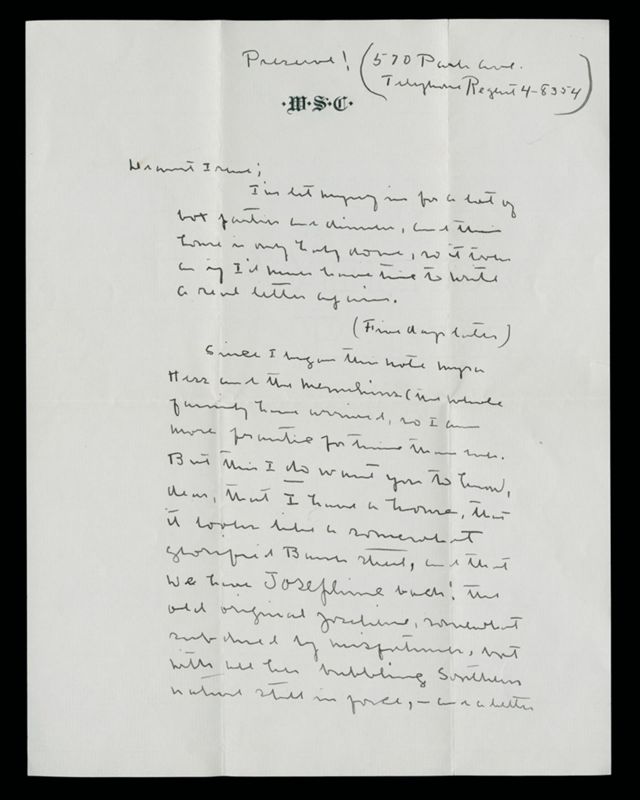 Preserve! (570 Park Ave.
Telephone Regent 4-8354)
·W·S·C·
Dearest Irene;
I've let myself in for a lot of
box parties and dinners, and this
house is only half done, so it looks
as if I'd never have time to write
a real letter again.
(Five days later)
Since I began this note Myra
Hess and the Menuhins (the whole
family) have arrived, so I am
more frantic for time than ever.
But this I do want you to know,
dear, that I have a home, that
it looks like a somewhat
glorified Bank Street, and that
we have Josephine back! The
old original Josephine, somewhat
subdued by misfortunes, but
with all her bubbling Southern
nature still in force, – and a better